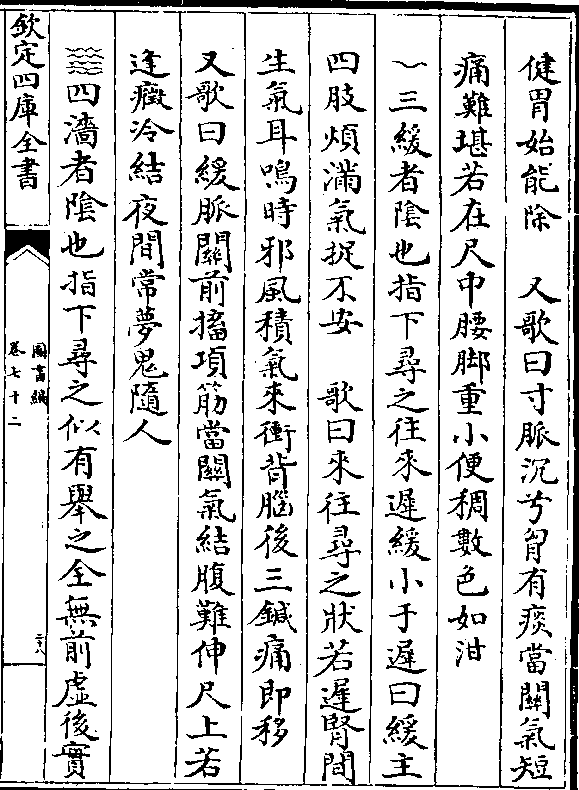 健胃始能除　又歌曰寸脈沉兮胷有痰當關氣短
痛難堪若在尺中腰脚重小便稠數色如泔
三緩者陰也指下尋之往來遲緩小于遲曰緩主
四肢煩滿氣捉不安　歌曰來往尋之狀若遲腎間
生氣耳鳴時邪風積氣來衝背腦後三鍼痛即移
又歌曰緩脈關前搐項筋當關氣結腹難伸尺上若
逢癥冷結夜間常夢鬼隨人
四濇者陰也指下尋之似有舉之全無前虛後實
欽定四庫全書
圖書編
卷七十二
二十八